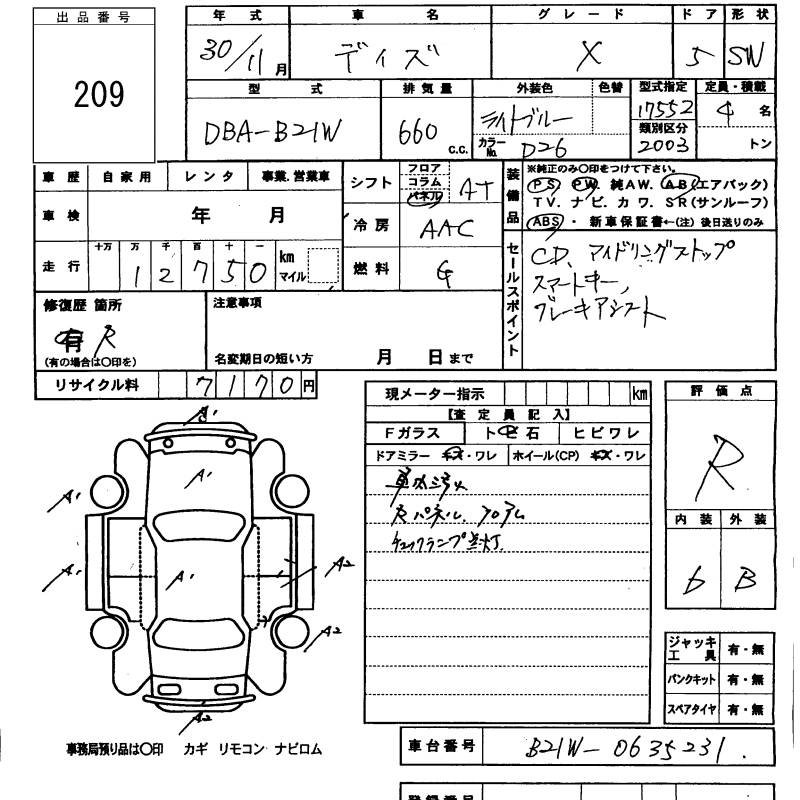 出品番号
209
年式 車名 グレード ドア 形状
30/11月 デイズ X 5 SW
型式 排気量 外装色 色替 型式指定 定員・積載
DBA-B21W 660 c.c. ライトブルー 17552 4 名
カラーNo. D26 類別区分 2003 トン
車歴 自家用 レンタ 事業.営業車
車検 年 月
走行 十万 万 千 百 十 一
12750 km マイル
シフト フロア コラム パネル AT
冷房 AAC
燃料 G
装備品
※純正のみ〇印をつけて下さい。
PS PW 純AW. AB(エアバック)
TV. ナビ. カワ. SR(サンルーフ)
ABS ・ 新車保証書←(注) 後日送りのみ
セールスポイント
CD、アイドリングストップ
スマートキー、
ブレーキアシスト
修復歴 箇所
有 R
(有の場合は〇印を)
注意事項
名変期日の短い方 月 日まで
リサイクル料 7170円
現メーター指示 km
【査定員記入】
Fガラス トビ石 ヒビワレ
ドアミラー キズ・ワレ ホイール(CP) キズ・ワレ
Rパネル、フロアム
チェックランプ点灯
評価点
R
内装 外装
6 B
ジャッキ工具 有・無
パンクキット 有・無
スペアタイヤ 有・無
A1
A1
A1
A1
A1
A2
A2
A2
事務局預り品は〇印 カギ リモコン ナビロム
車台番号 B21W-0635231
登録番号